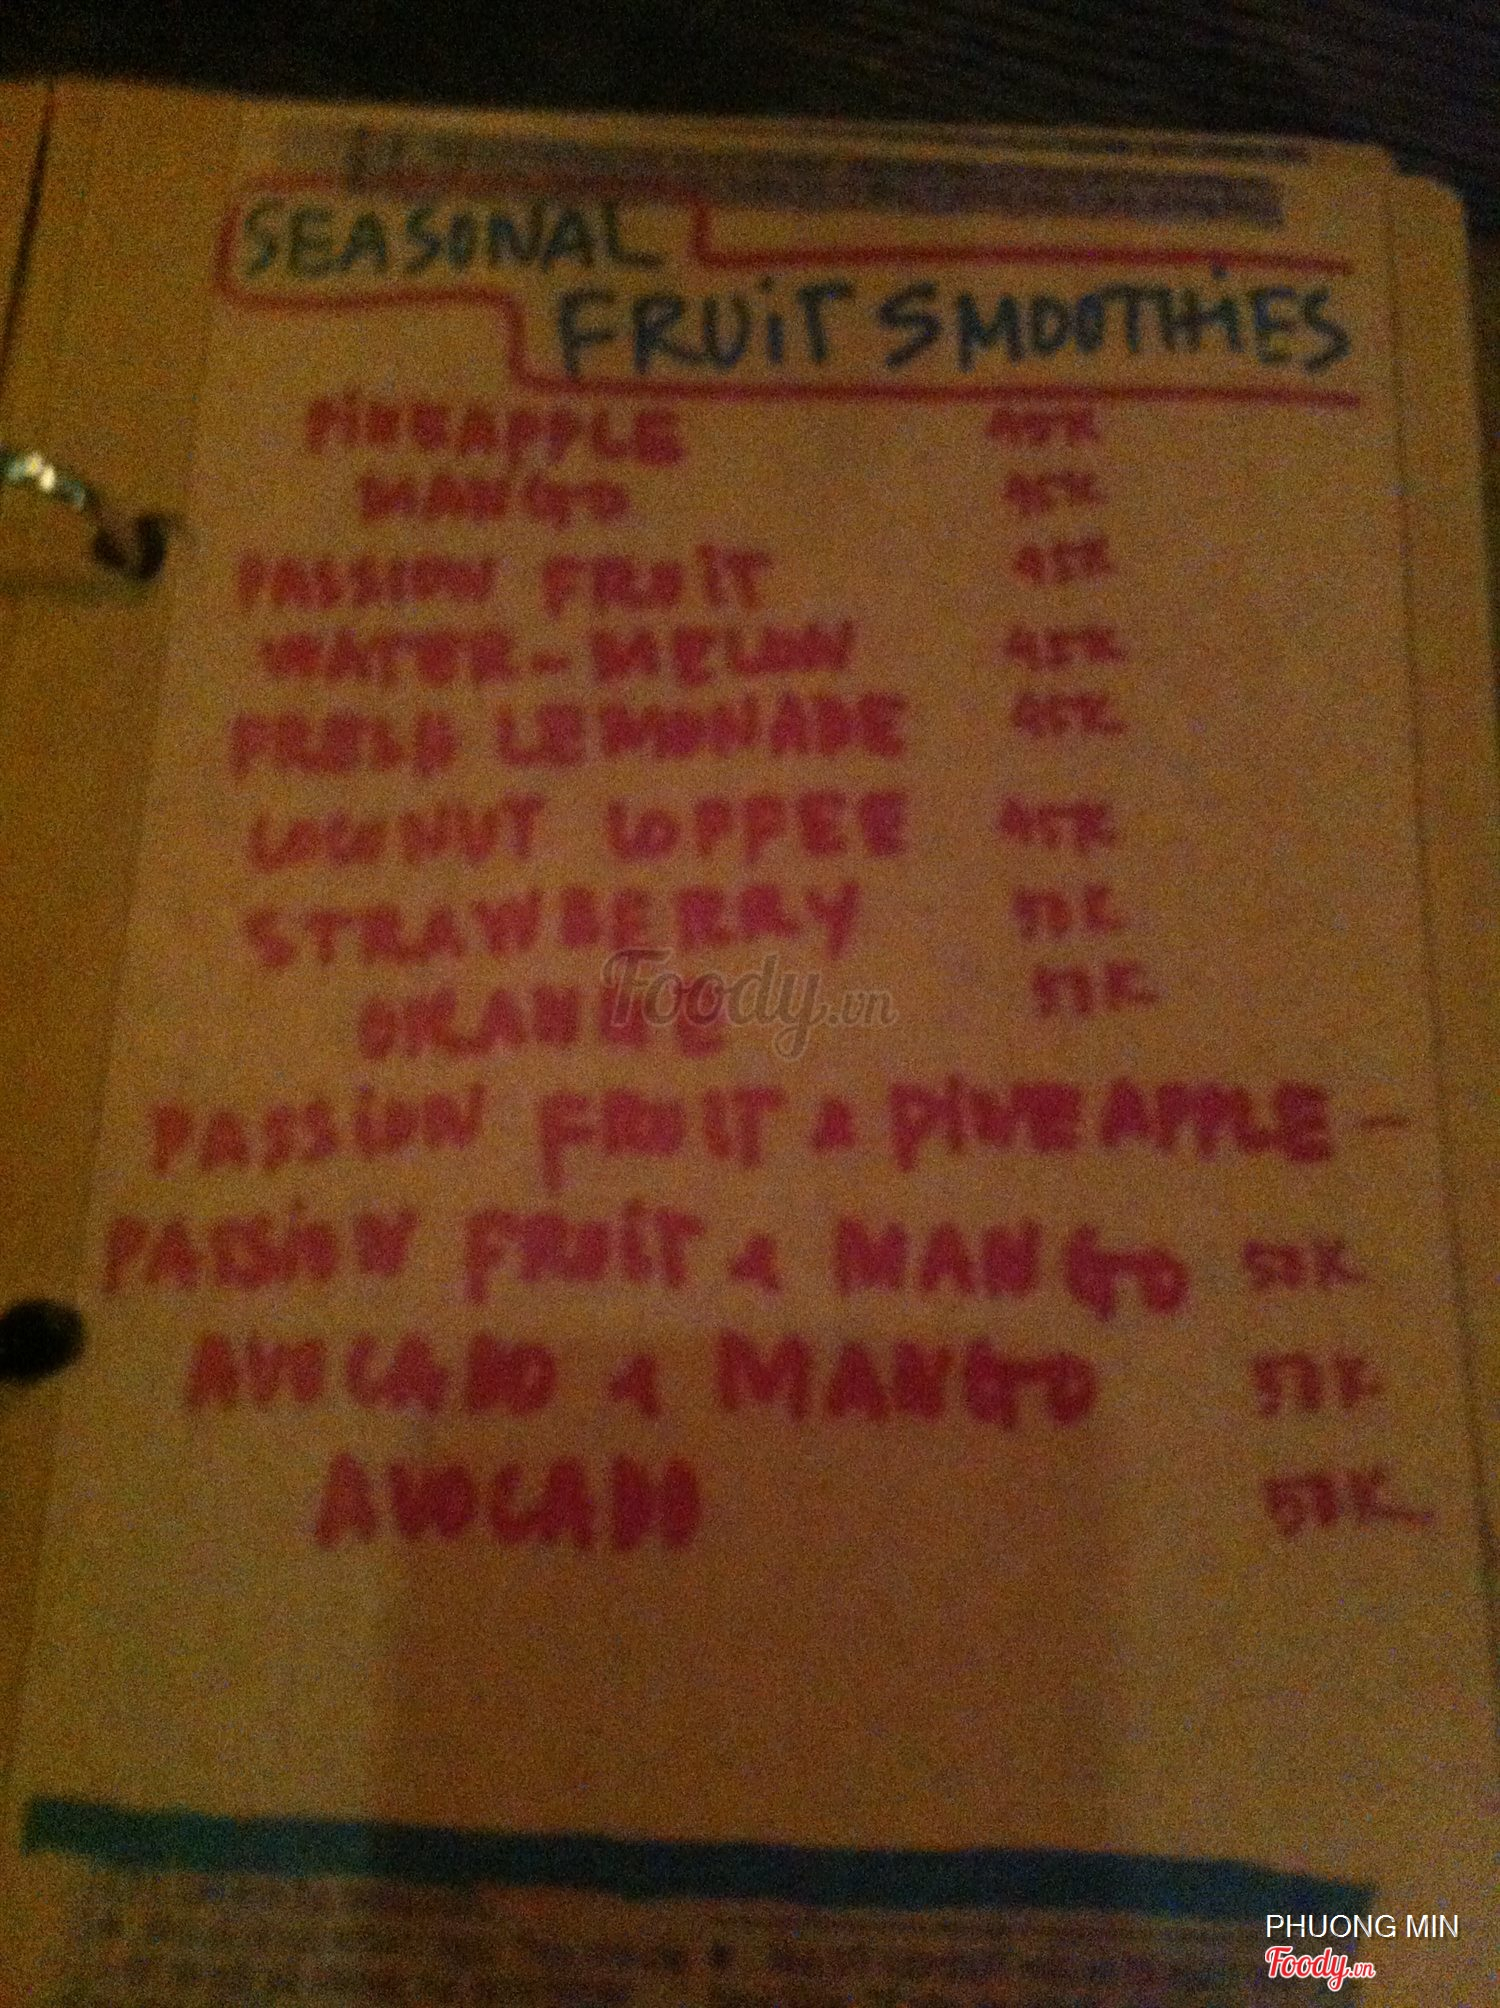 SEASONAL
FRUiT SMOOTHiES
PiNEAPPLE 45K
MANGO 45K
PASSION FRUiT 45K
WATER-MELON 45K
FRESH LEMONADE 45K
COCONUT COFFEE 45K
STRAWBERRY
ORANGE
Foody.vn
PASSiON FRUIT & PiNEAPPLE -
PASSiON FRUiT & MANGO 50K
AVOCADO & MANGO
AVOCADO
PHUONG MIN
Foody.vn